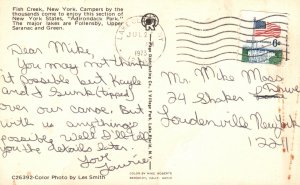 Fish Creek, New York. Campers by the
thousands come to enjoy this section of
New York States, "Adirondack Park."
The major lakes are Follensby, Upper
Saranac and Green.
Dear Mike,
You may not think
it possible but Kayle
and I sunk (tipsy)
over our canoe. But
with us anything's
possible. Well I'll tell
you the details later.
Love
Laurie
C26392-Color Photo by Les Smith
COLOR BY MIKE ROBERTS
BERKELEY, CALIF. 94710
LAKE
JUL
197
6c
Mr. Mike Moss
24 Shaker Drive
Loudonville New York
12211